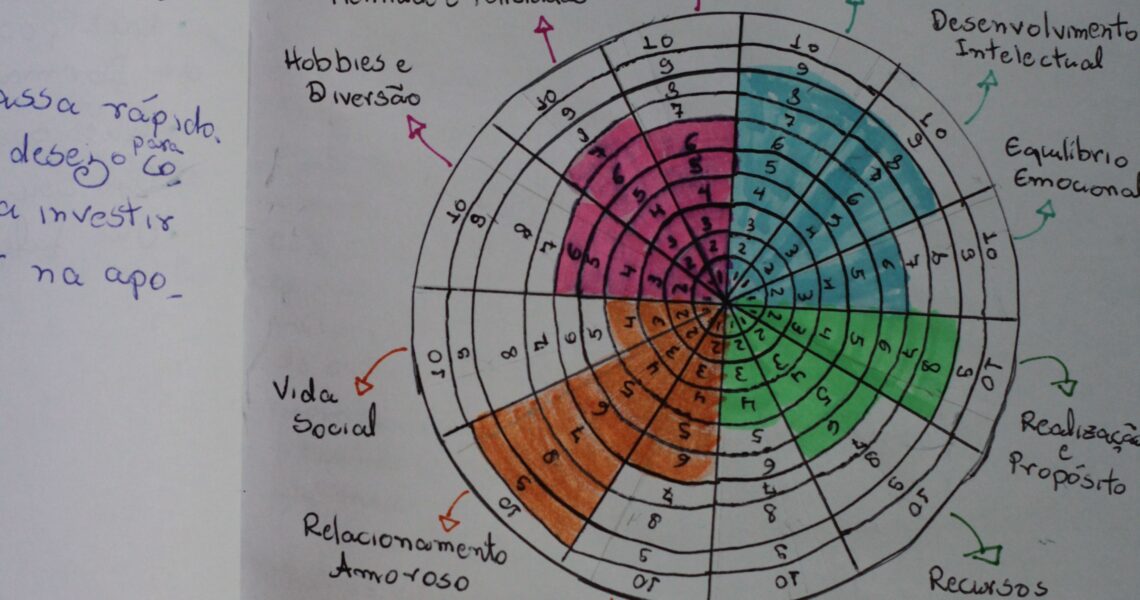 rápido.
desejo para
a investir
na apo_
Hobbies e
Diversão
Desenvolvimento
Intelectual
Equilíbrio
Emocional
Realização
e
Propósito
Recursos
Relacionamento
Amoroso
Vida
Social
1 2 3 4 5 6 7 8 9 10
1 2 3 4 5 6 7 8 9 10
1 2 3 4 5 6 7 8 9 10
1 2 3 4 5 6 7 8 9 10
1 2 3 4 5 6 7 8 9 10
1 2 3 4 5 6 7 8 9 10
1 2 3 4 5 6 7 8 9 10
1 2 3 4 5 6 7 8 9 10
1 2 3 4 5 6 7 8 9 10
1 2 3 4 5 6 7 8 9 10
1 2 3 4 5 6 7 8 9 10